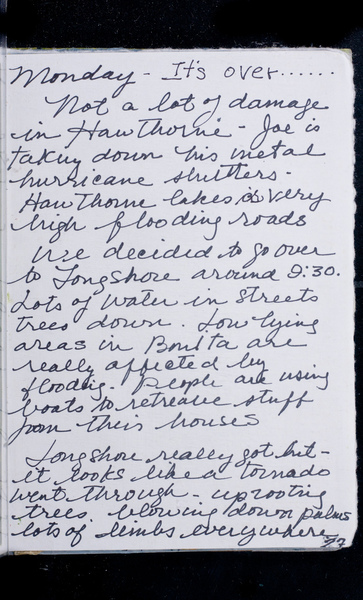 Monday - It's over......
Not a lot of damage
in Hawthorne - Joe is
taking down his metal
hurricane shutters -
Hawthorne lakes is very
high flooding roads
We decided to go over
to Longshore around 2:30.
Lots of water in streets
trees down. Low lying
areas in Bonita are
really affected by
flooding. People are using
boats to retreave stuff
from their houses
Longshore really got hit -
it looks like a tornado
went through - uprooting
trees, blowing down palms
lots of limbs everywhere